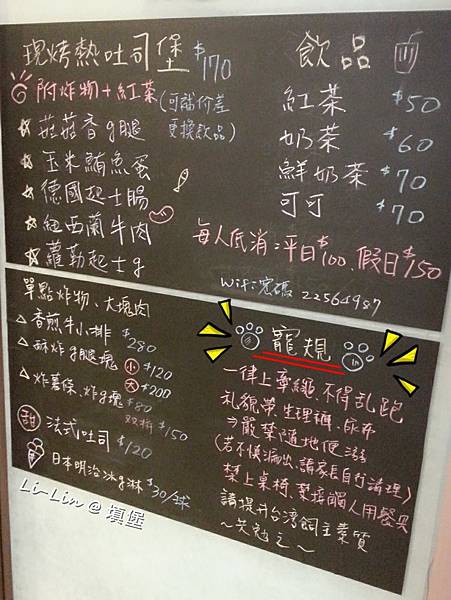 現烤熱吐司堡 $170
附炸物+紅茶(可補価差更換飲品)
菇菇香g腿
玉米鮪魚蛋
德國起士腸
紐西蘭牛肉
蘿勒起士g
飲品
紅茶 $50
奶茶 $60
鮮奶茶 $70
可可 $70
每人低消:平日$100、假日$150
Wifi密碼 22564987
單點炸物、大塊肉
香煎牛小排 $280
酥炸g腿塊 小 $120
大 $200
炸薯條、炸g塊 $80
双拼 $150
甜 法式吐司 $120
日本明治冰g淋 $30/球
寵規
一律上牽繩、不得乱跑
礼貌帶、生理褲、尿布
⇒嚴禁隨地便溺
(若不慎漏出、請家長自行清理)
禁上桌椅、禁接觸人用餐具
請提升台湾飼主素質
~共勉之~
Li-Lin @ 填堡